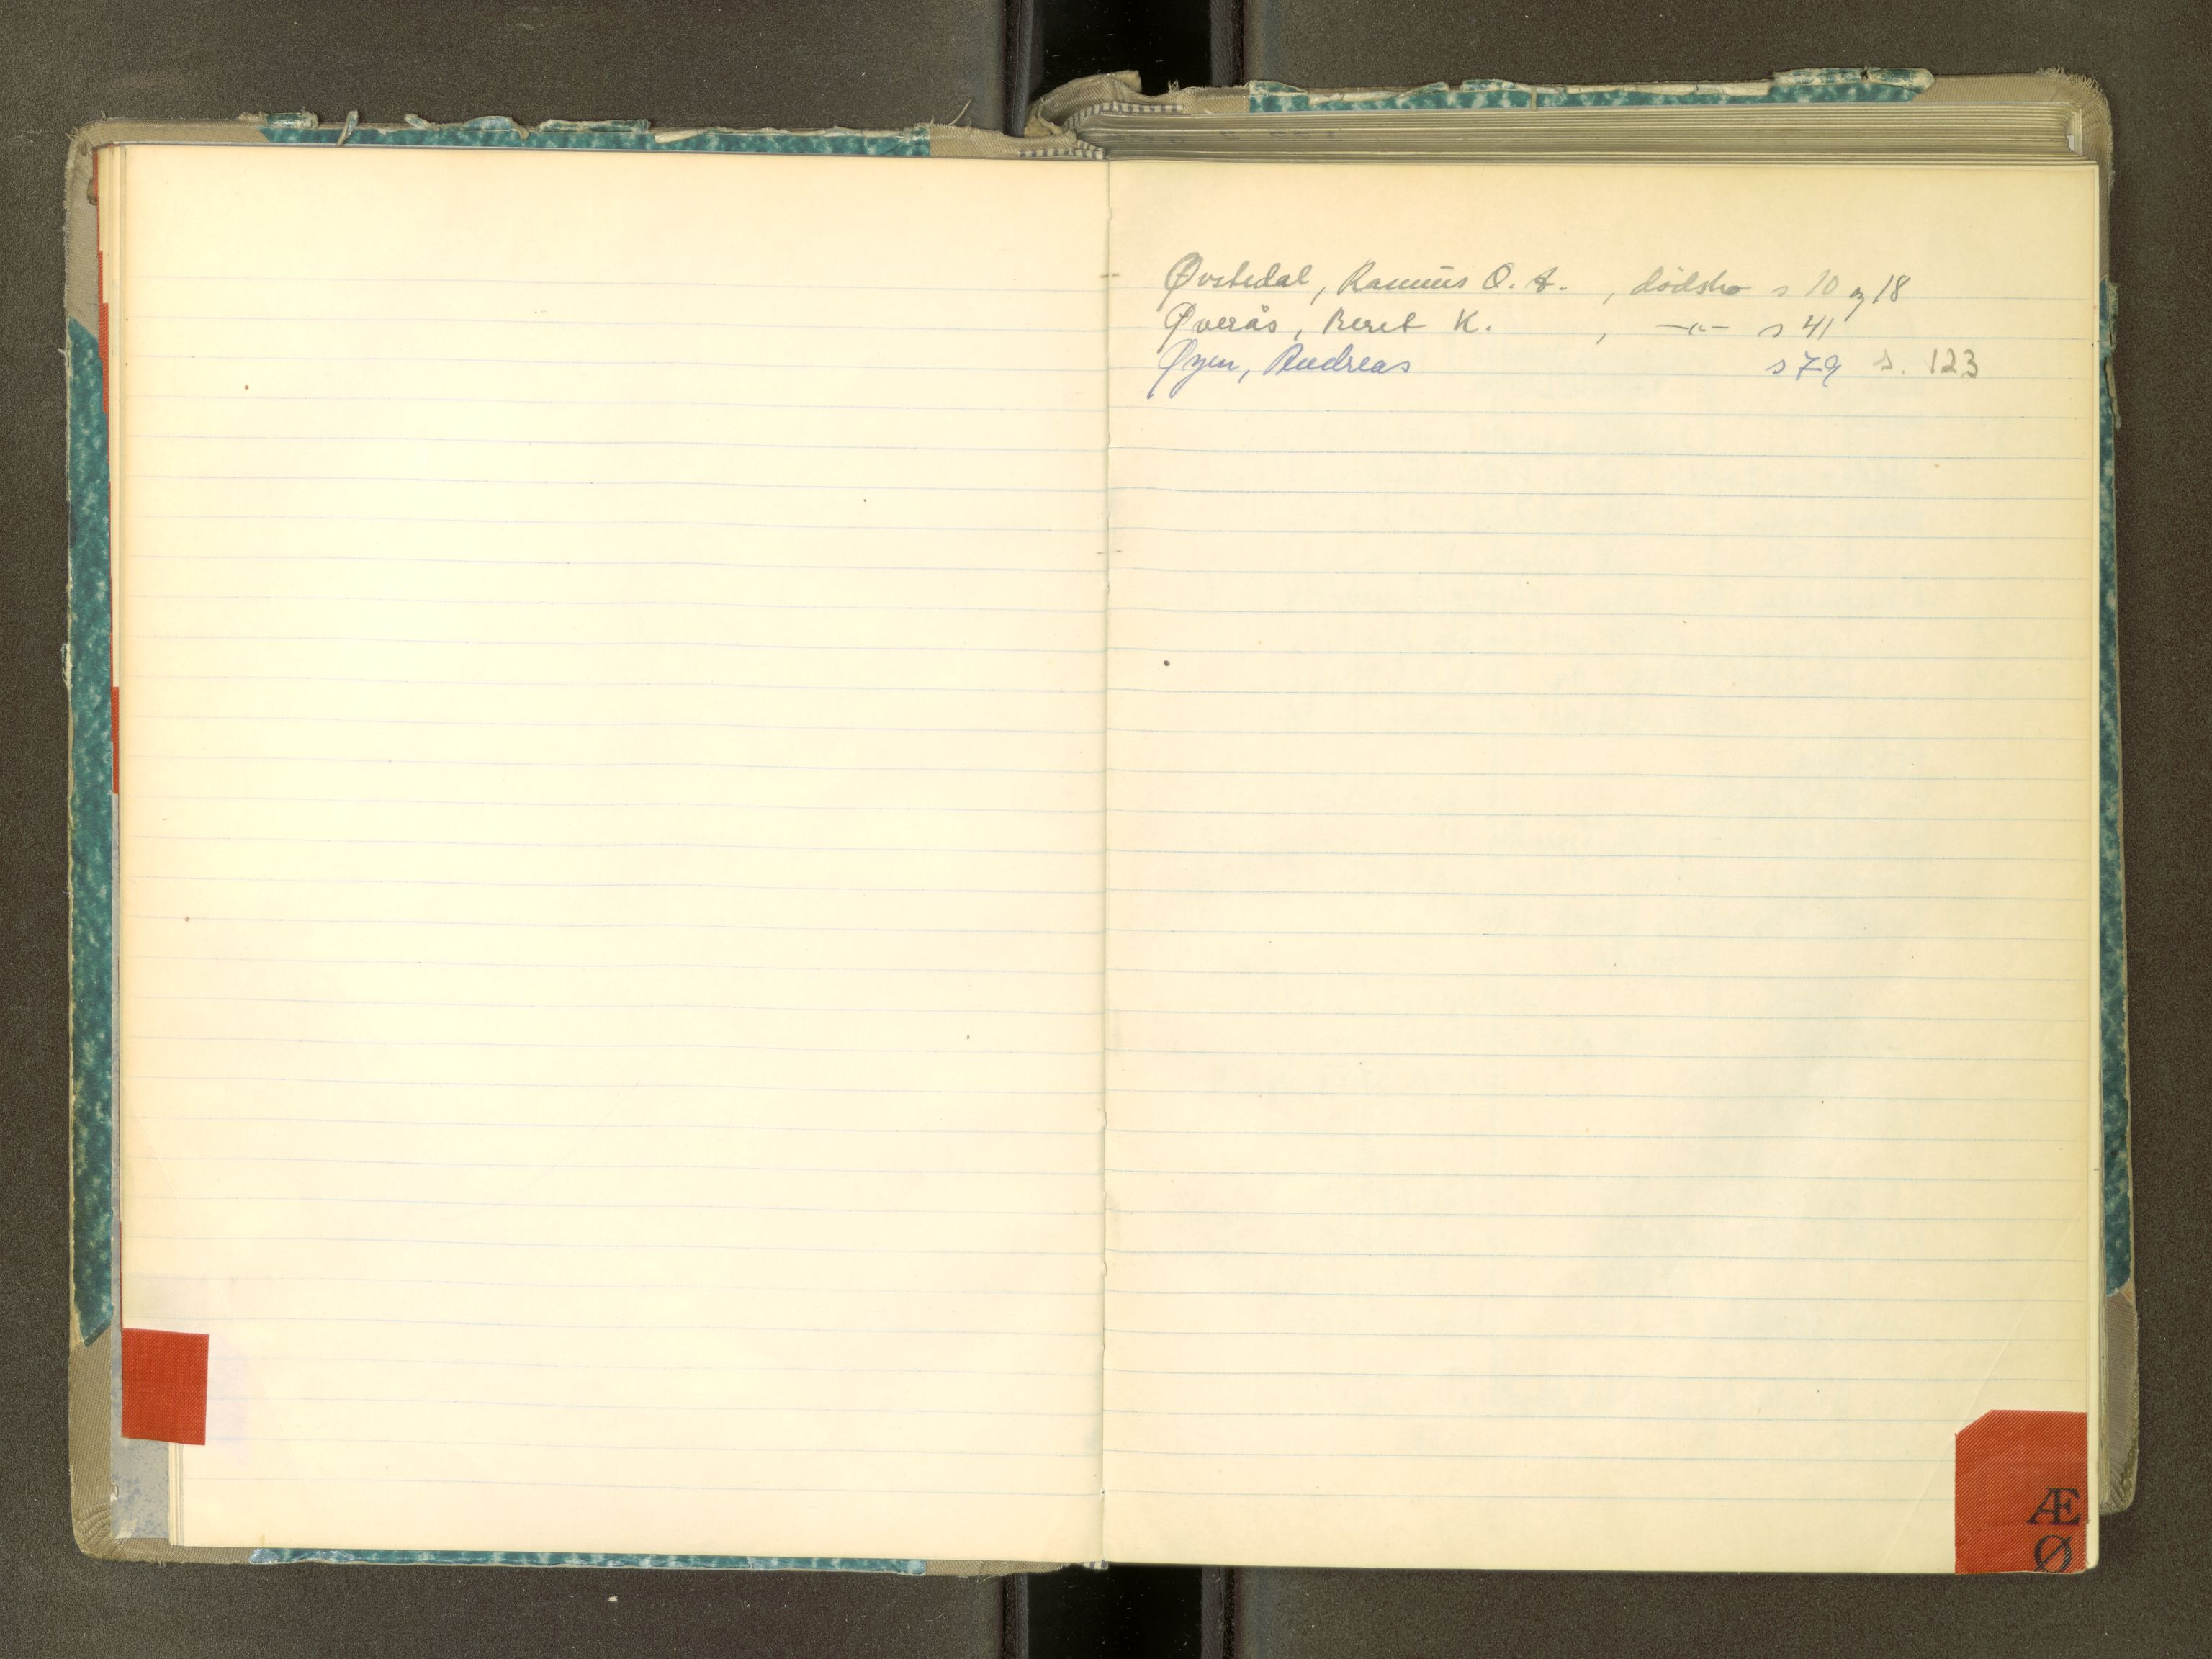 Øvstedal, Rasmus O. A. , dødsbo s 10 og 18
Øverås, Beret K. , —"— s 41
Øyen, Andreas s 79 s. 123
Æ
Ø